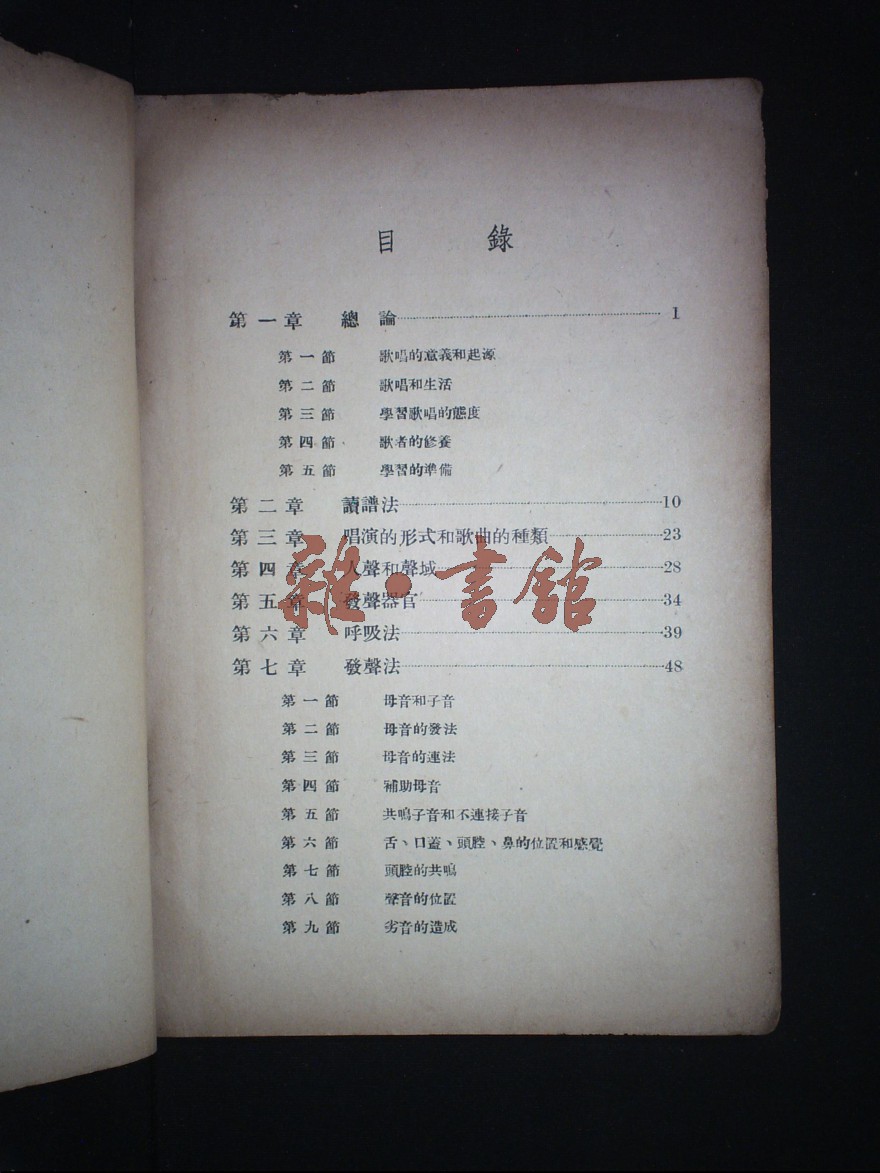 目錄
第一章 總論 1
第一節 歌唱的意義和起源
第二節 歌唱和生活
第三節 學習歌唱的態度
第四節 歌者的修養
第五節 學習的準備
第二章 讀譜法 10
第三章 唱演的形式和歌曲的種類 23
第四章 人聲和聲域 28
第五章 發聲器官 34
第六章 呼吸法 39
第七章 發聲法 48
第一節 母音和子音
第二節 母音的發法
第三節 母音的連法
第四節 補助母音
第五節 共鳴子音和不連接子音
第六節 舌、口蓋、頭腔、鼻的位置和感覺
第七節 頭腔的共鳴
第八節 聲音的位置
第九節 劣音的造成
雜·書館